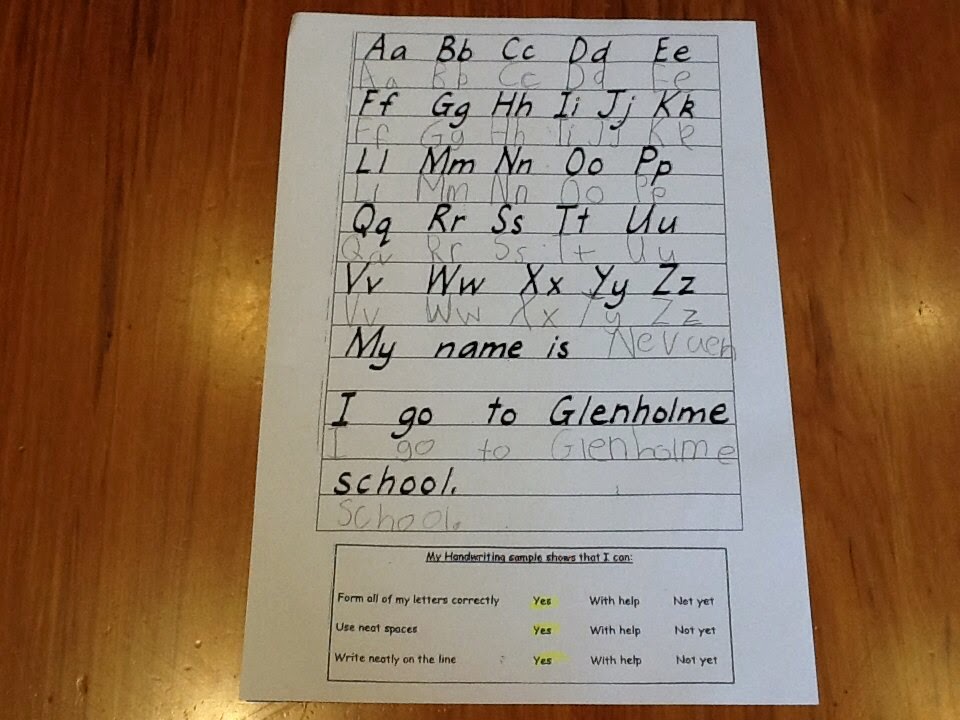 Aa Bb Cc Dd Ee
Aa Bb Cc Dd Ee
Ff Gg Hh Ii Jj Kk
Ff Gg Hh Ii Jj Kk
Ll Mm Nn Oo Pp
Ll Mm Nn Oo Pp
Qq Rr Ss Tt Uu
Qq Rr Ss Tt Uu
Vv Ww Xx Yy Zz
Vv Ww Xx Yy Zz
My name is Nevaeh
I go to Glenholme
I go to Glenholme
school.
School.
My Handwriting sample shows that I can:
Form all of my letters correctly Yes With help Not yet
Use neat spaces Yes With help Not yet
Write neatly on the line Yes With help Not yet